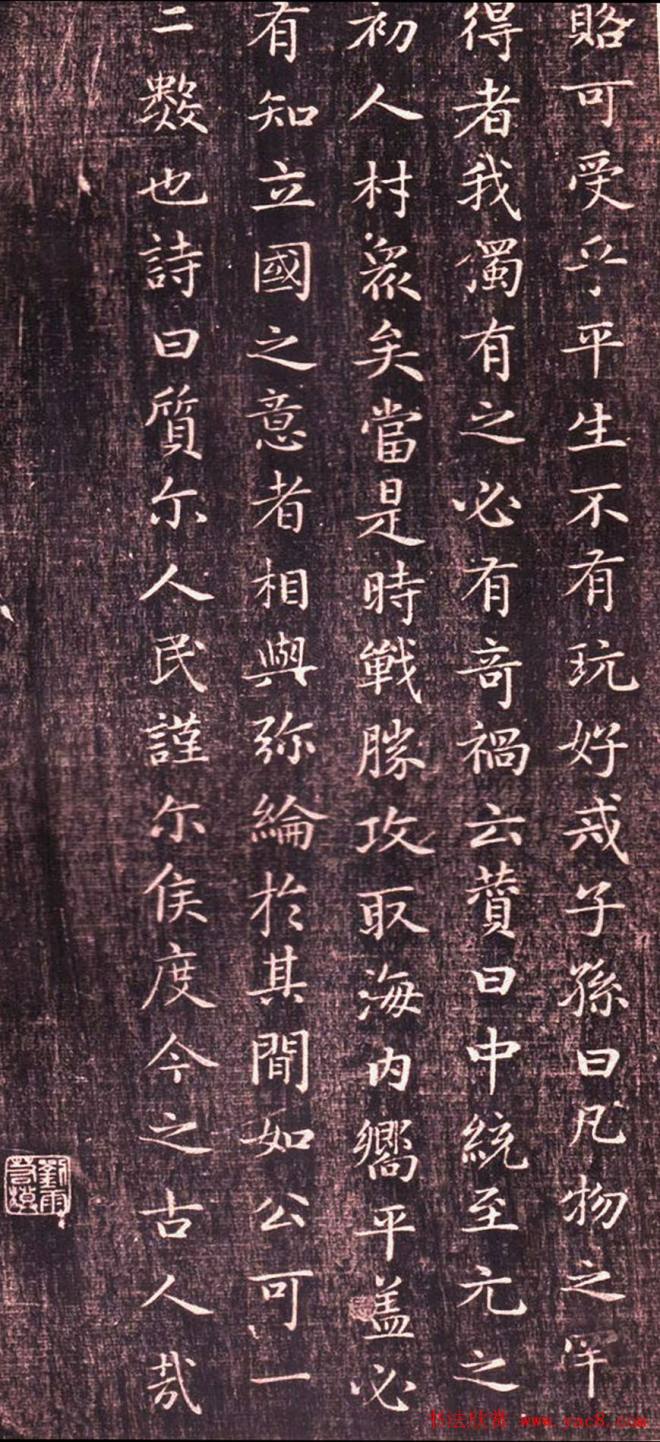 賂可受乎平生不有玩好戒子孫曰凡物之罕
得者我獨有之必有奇禍云贊曰中統至元之
初人材眾矣當是時戰勝攻取海內嚮平盖必
有知立國之意者相與弥綸於其間如公可一
二數也詩曰質尔人民謹尔侯度今之古人哉
劉雨
书法欣赏 www.yac8.com